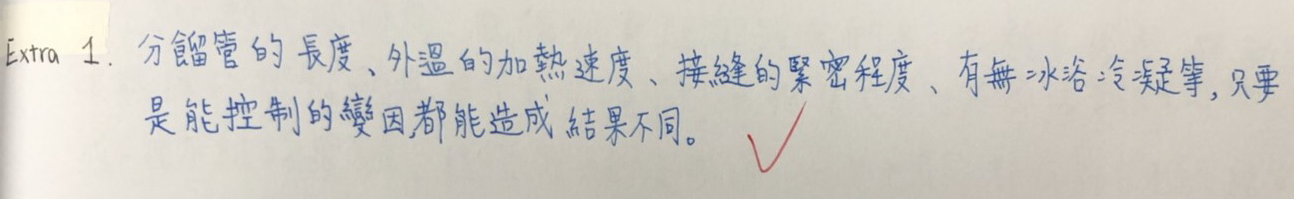 Extra 1. 分餾管的長度、外溫的加熱速度、接縫的緊密程度、有無冰浴冷凝等,只要
是能控制的變因,都能造成結果不同。